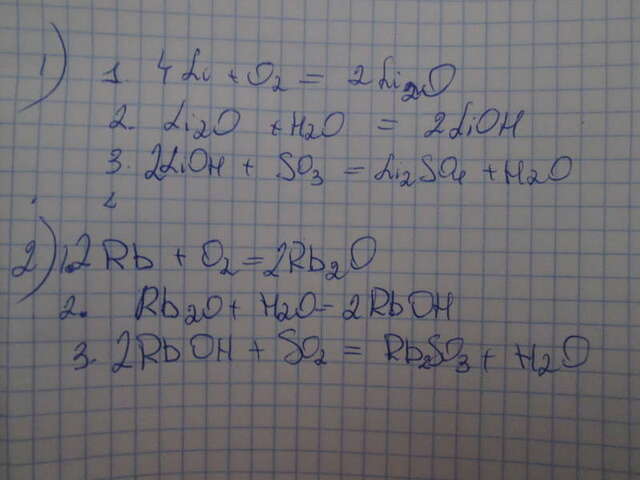 1) 1. 4Li + O2 = 2Li2O
2. Li2O + H2O = 2LiOH
3. 2LiOH + SO3 = Li2SO4 + H2O
2) 1. 2Rb + O2 = 2Rb2O
2. Rb2O + H2O = 2RbOH
3. 2RbOH + SO2 = Rb2SO3 + H2O